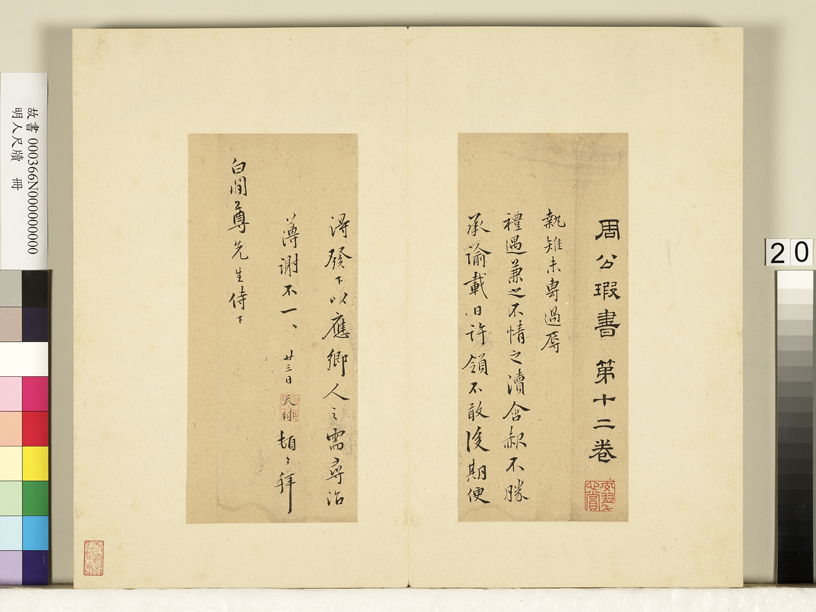 周公瑕書 第十二卷
執雉未專過辱
禮遇兼之不情之瀆含赧不勝
承諭載旧許領不敢後期便
得發下以應鄉人之需專治
薄謝不一、
廿三日 天球 頓〻拜
白閒尊先生侍下
故書 000366N000000000
明人尺牘 冊
20